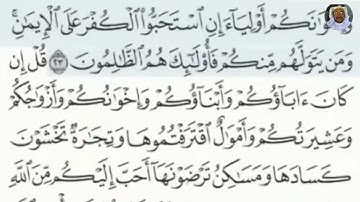 وَإِخْوَٰنَكُمْ أَوْلِيَآءَ إِنِ ٱسْتَحَبُّوا۟ ٱلْكُفْرَ عَلَى ٱلْإِيمَٰنِ ۚ
وَمَن يَتَوَلَّهُم مِّنكُمْ فَأُو۟لَٰٓئِكَ هُمُ ٱلظَّٰلِمُونَ ٢٣ قُلْ إِن
كَانَ ءَابَآؤُكُمْ وَأَبْنَآؤُكُمْ وَإِخْوَٰنُكُمْ وَأَزْوَٰجُكُمْ
وَعَشِيرَتُكُمْ وَأَمْوَٰلٌ ٱقْتَرَفْتُمُوهَا وَتِجَٰرَةٌ تَخْشَوْنَ
كَسَادَهَا وَمَسَٰكِنُ تَرْضَوْنَهَآ أَحَبَّ إِلَيْكُم مِّنَ ٱللَّهِ